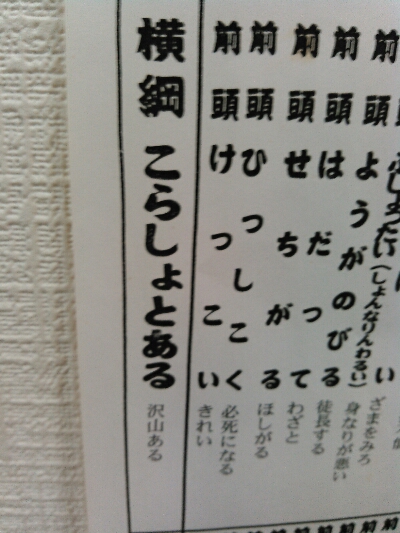 い ざまをみろ
前頭 ぶしょったい(しょんなりんわるい) 身なりが悪い
前頭 ようがのびる 徒長する
前頭 はだって わざと
前頭 せちがる ほしがる
前頭 ひっしこく 必死になる
前頭 けっこい きれい
横綱 こらしょとある 沢山ある